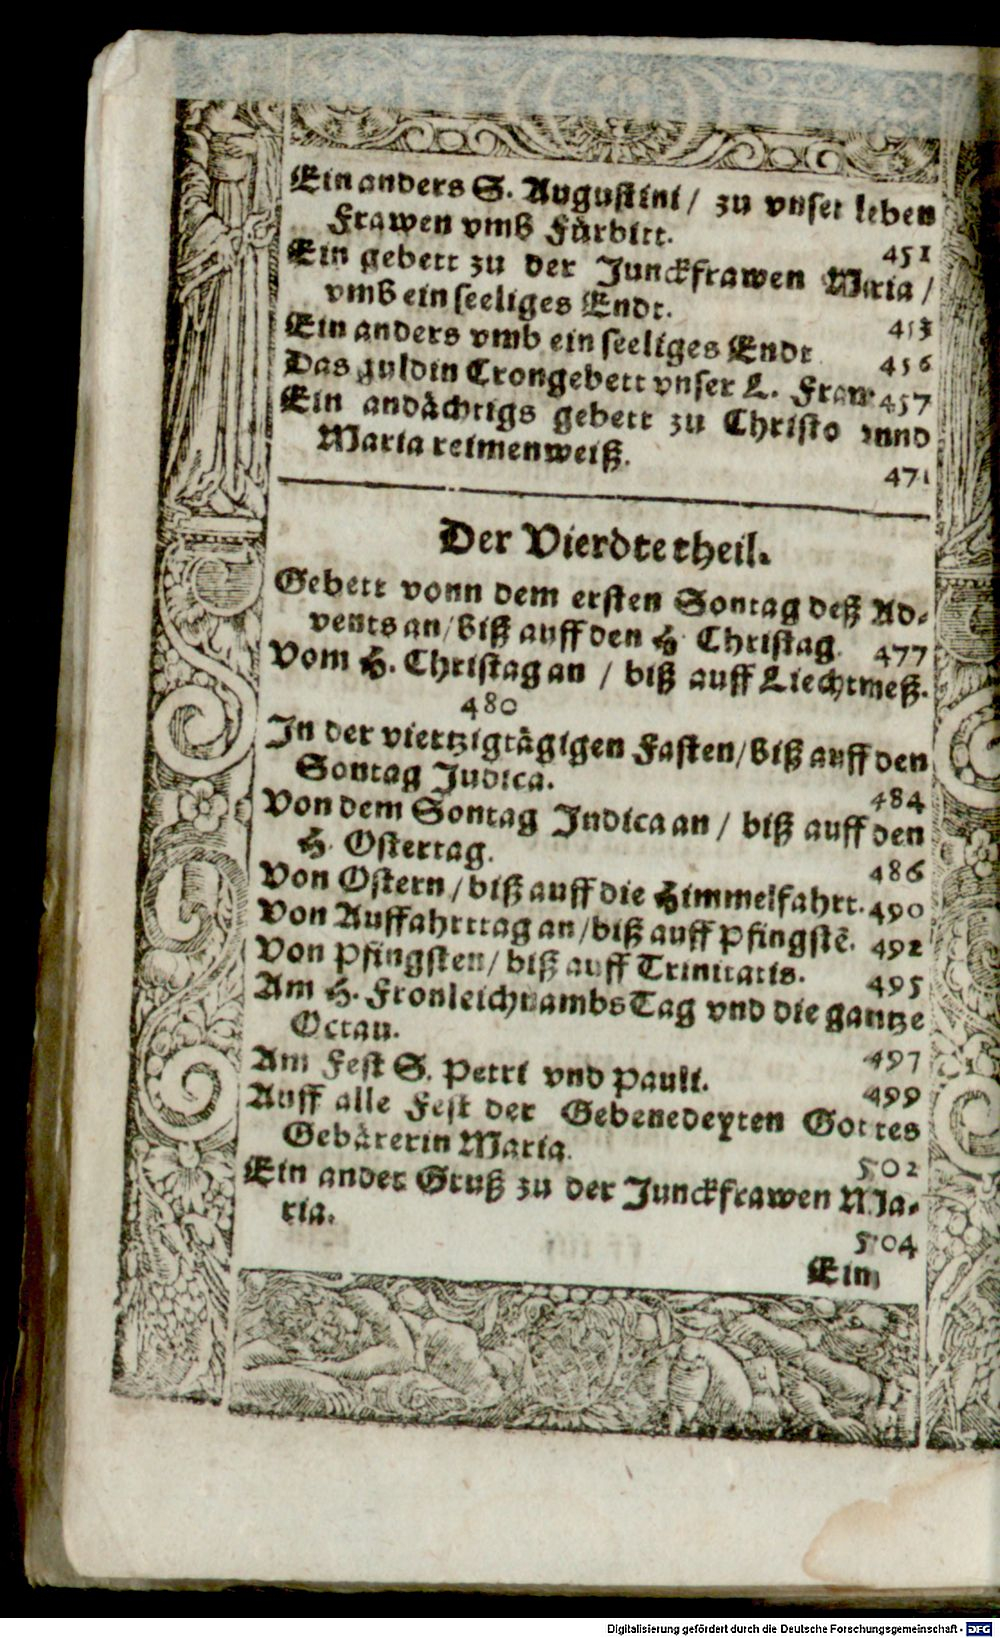 Ein anders S. Augustini / zu vnser lieben
Frawen vmb Fürbitt. 451
Ein gebett zu der Junckfrawen Maria /
vmb ein seeliges Endt. 453
Ein anders vmb ein seeliges Endt 456
Das guldin Crongebett vnser L. Fraw 457
Ein andächtigs gebett zu Christo vnnd
Maria reimenweiß. 471
Der Vierdte theil.
Gebett vonn dem ersten Sontag deß Ad-
vents an / biß auff den H. Christag. 477
Vom H. Christag an / biß auff Liechtmeß.
480
In der viertzigtägigen Fasten / biß auff den
Sontag Judica. 484
Von dem Sontag Judica an / biß auff den
H. Ostertag. 486
Von Ostern / biß auff die Himmelfahrt. 490
Von Auffahrttag an / biß auff Pfingstē. 492
Von Pfingsten / biß auff Trinitatis. 495
Am H. Fronleichnambs Tag vnd die gantze
Octau. 497
Am Fest S. Petri vnd Pauli. 499
Auff alle Fest der Gebenedeyten Gottes
Gebärerin Maria. 502
Ein ander Gruß zu der Junckfrawen Ma-
ria. 504
Ein
Digitalisierung gefördert durch die Deutsche Forschungsgemeinschaft - DFG